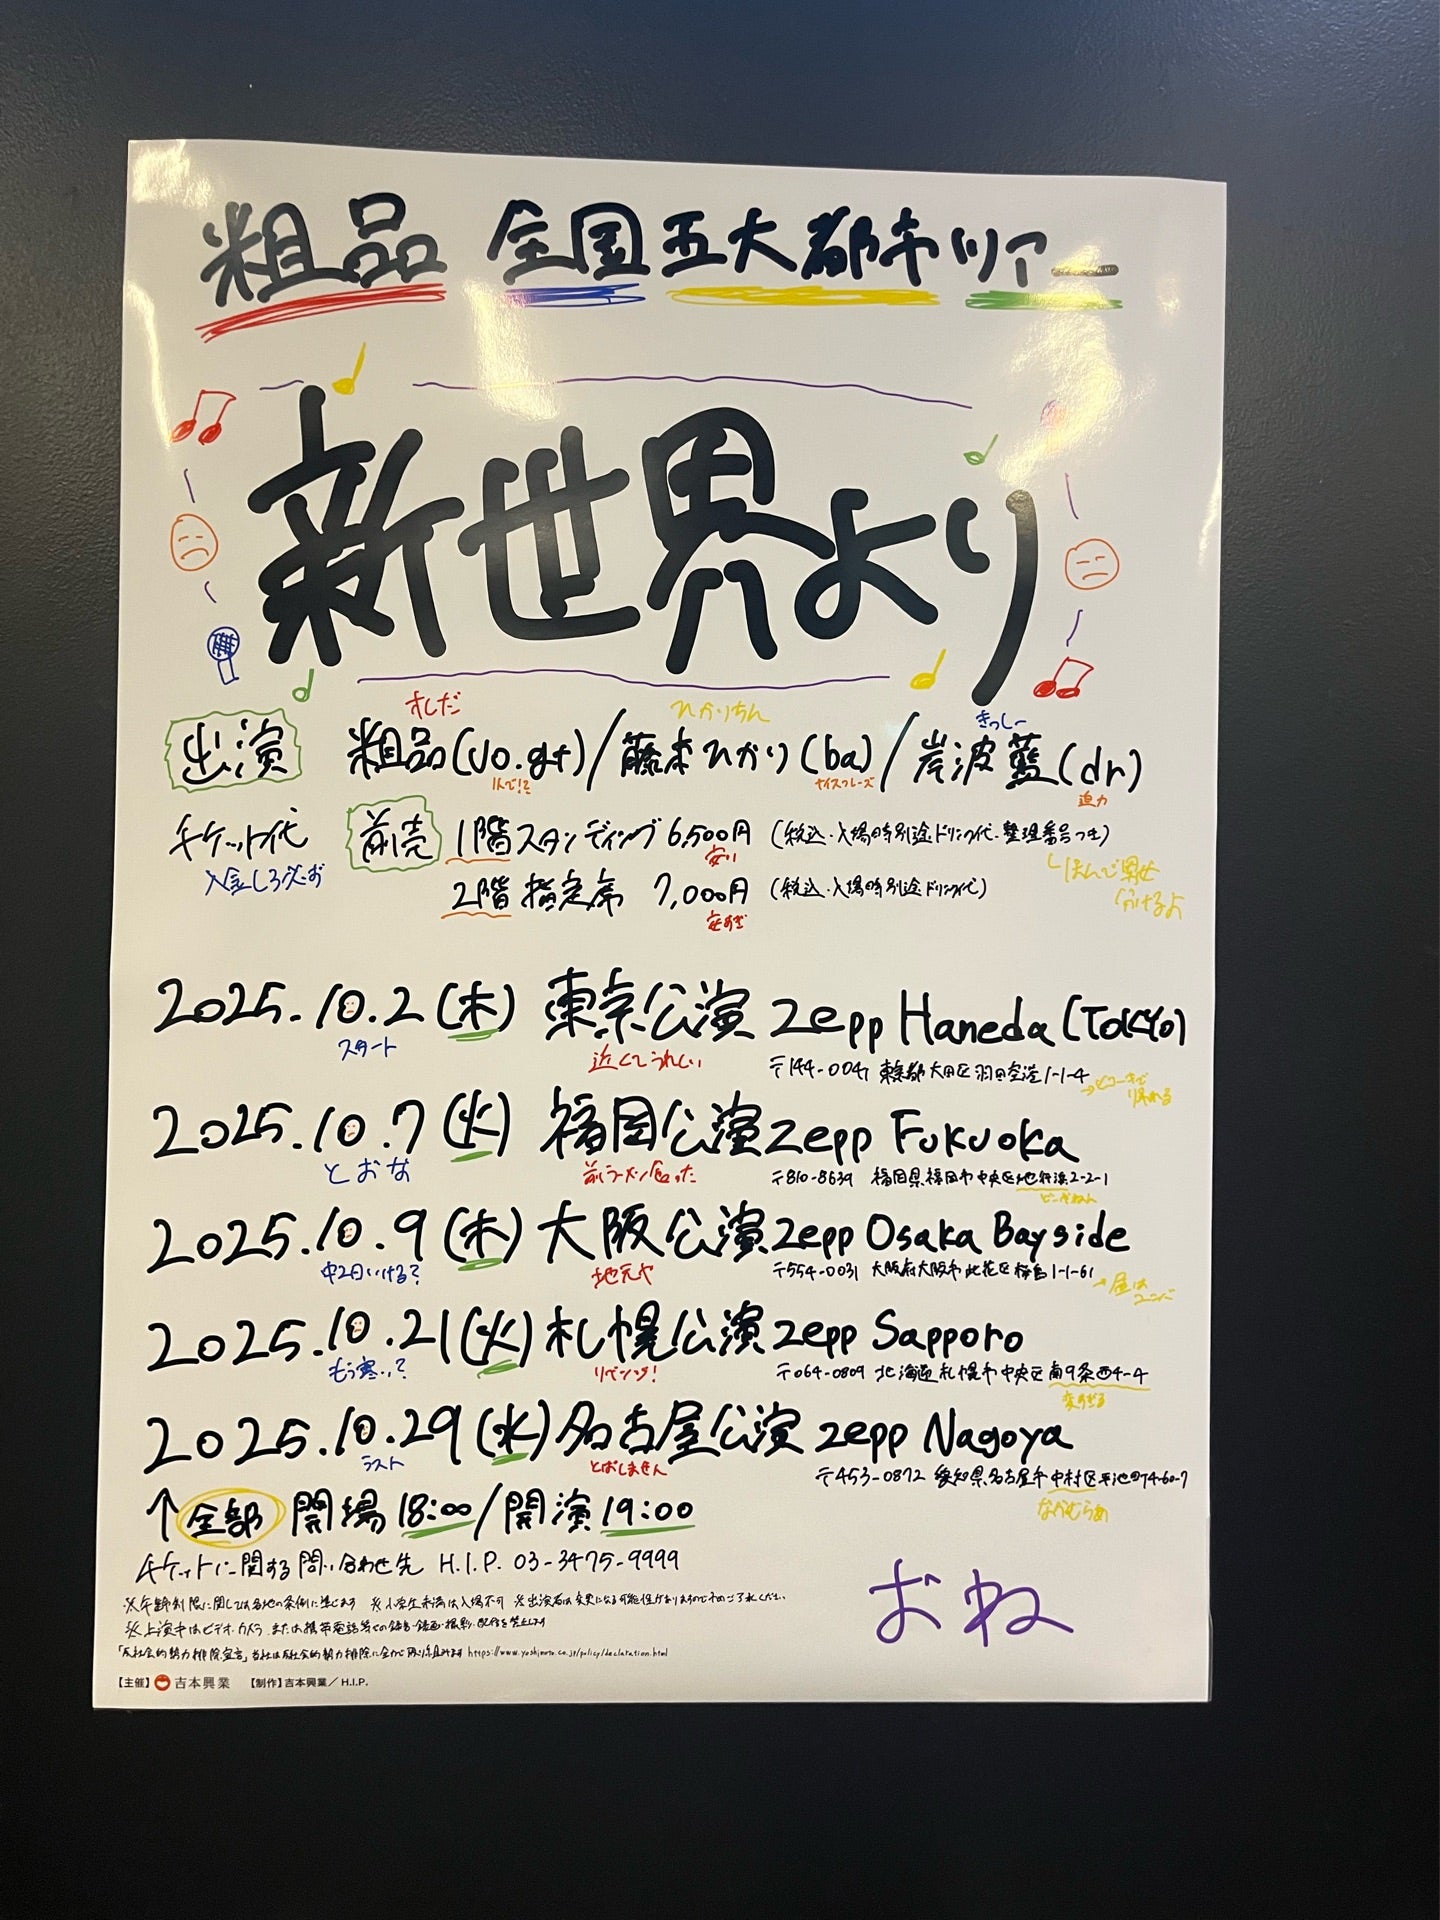 粗品 全国五大都市ツアー
新世界より
そしだ ひかりちん きっしー
出演 粗品(vo.gt)/藤本ひかり(ba)/岸波藍(dr)
1人で!? ナイスフレーズ 迫力
チケット代 前売 1階スタンディング 6,500円 (税込・入場時別途ドリンク代・整理番号つき)
入金しろ必ず 安い
2階 指定席 7,000円 (税込・入場時別途ドリンク代)
安すぎ
2025.10.2(木) 東京公演 Zepp Haneda(TOKYO)
スタート 近くてうれしい 〒144-0041 東京都大田区羽田空港1-1-4
2025.10.7(火) 福岡公演 Zepp Fukuoka
とおな 前ラーメン食った 〒810-8639 福岡県福岡市中央区地行浜2-2-1
2025.10.9(木) 大阪公演 Zepp Osaka Bayside
中2日いける? 地元や 〒554-0031 大阪府大阪市此花区桜島1-1-61
2025.10.21(火) 札幌公演 Zepp Sapporo
もう寒い? リベンジ! 〒064-0809 北海道札幌市中央区南9条西4-4
変すぎる
2025.10.29(水) 名古屋公演 Zepp Nagoya
ラスト とばしません 〒453-0872 愛知県名古屋市中村区平池町4-60-7
なかむらぁ
↑全部 開場18:00/開演19:00
チケットに関する問い合わせ先 H.I.P. 03-3475-9999
※年齢制限に関しては各地の条例に準じます ※小学生未満は入場不可 ※出演者は変更になる可能性がありますので予めご了承ください
※上演中はビデオ・カメラ、または携帯電話等での録音・録画・撮影・配信を禁止します
「反社会的勢力排除宣言」当社は反社会的勢力排除に全力で取り組みます https://www.yoshimoto.co.jp/policy/declaration.html
おね
【主催】吉本興業 【制作】吉本興業/H.I.P.